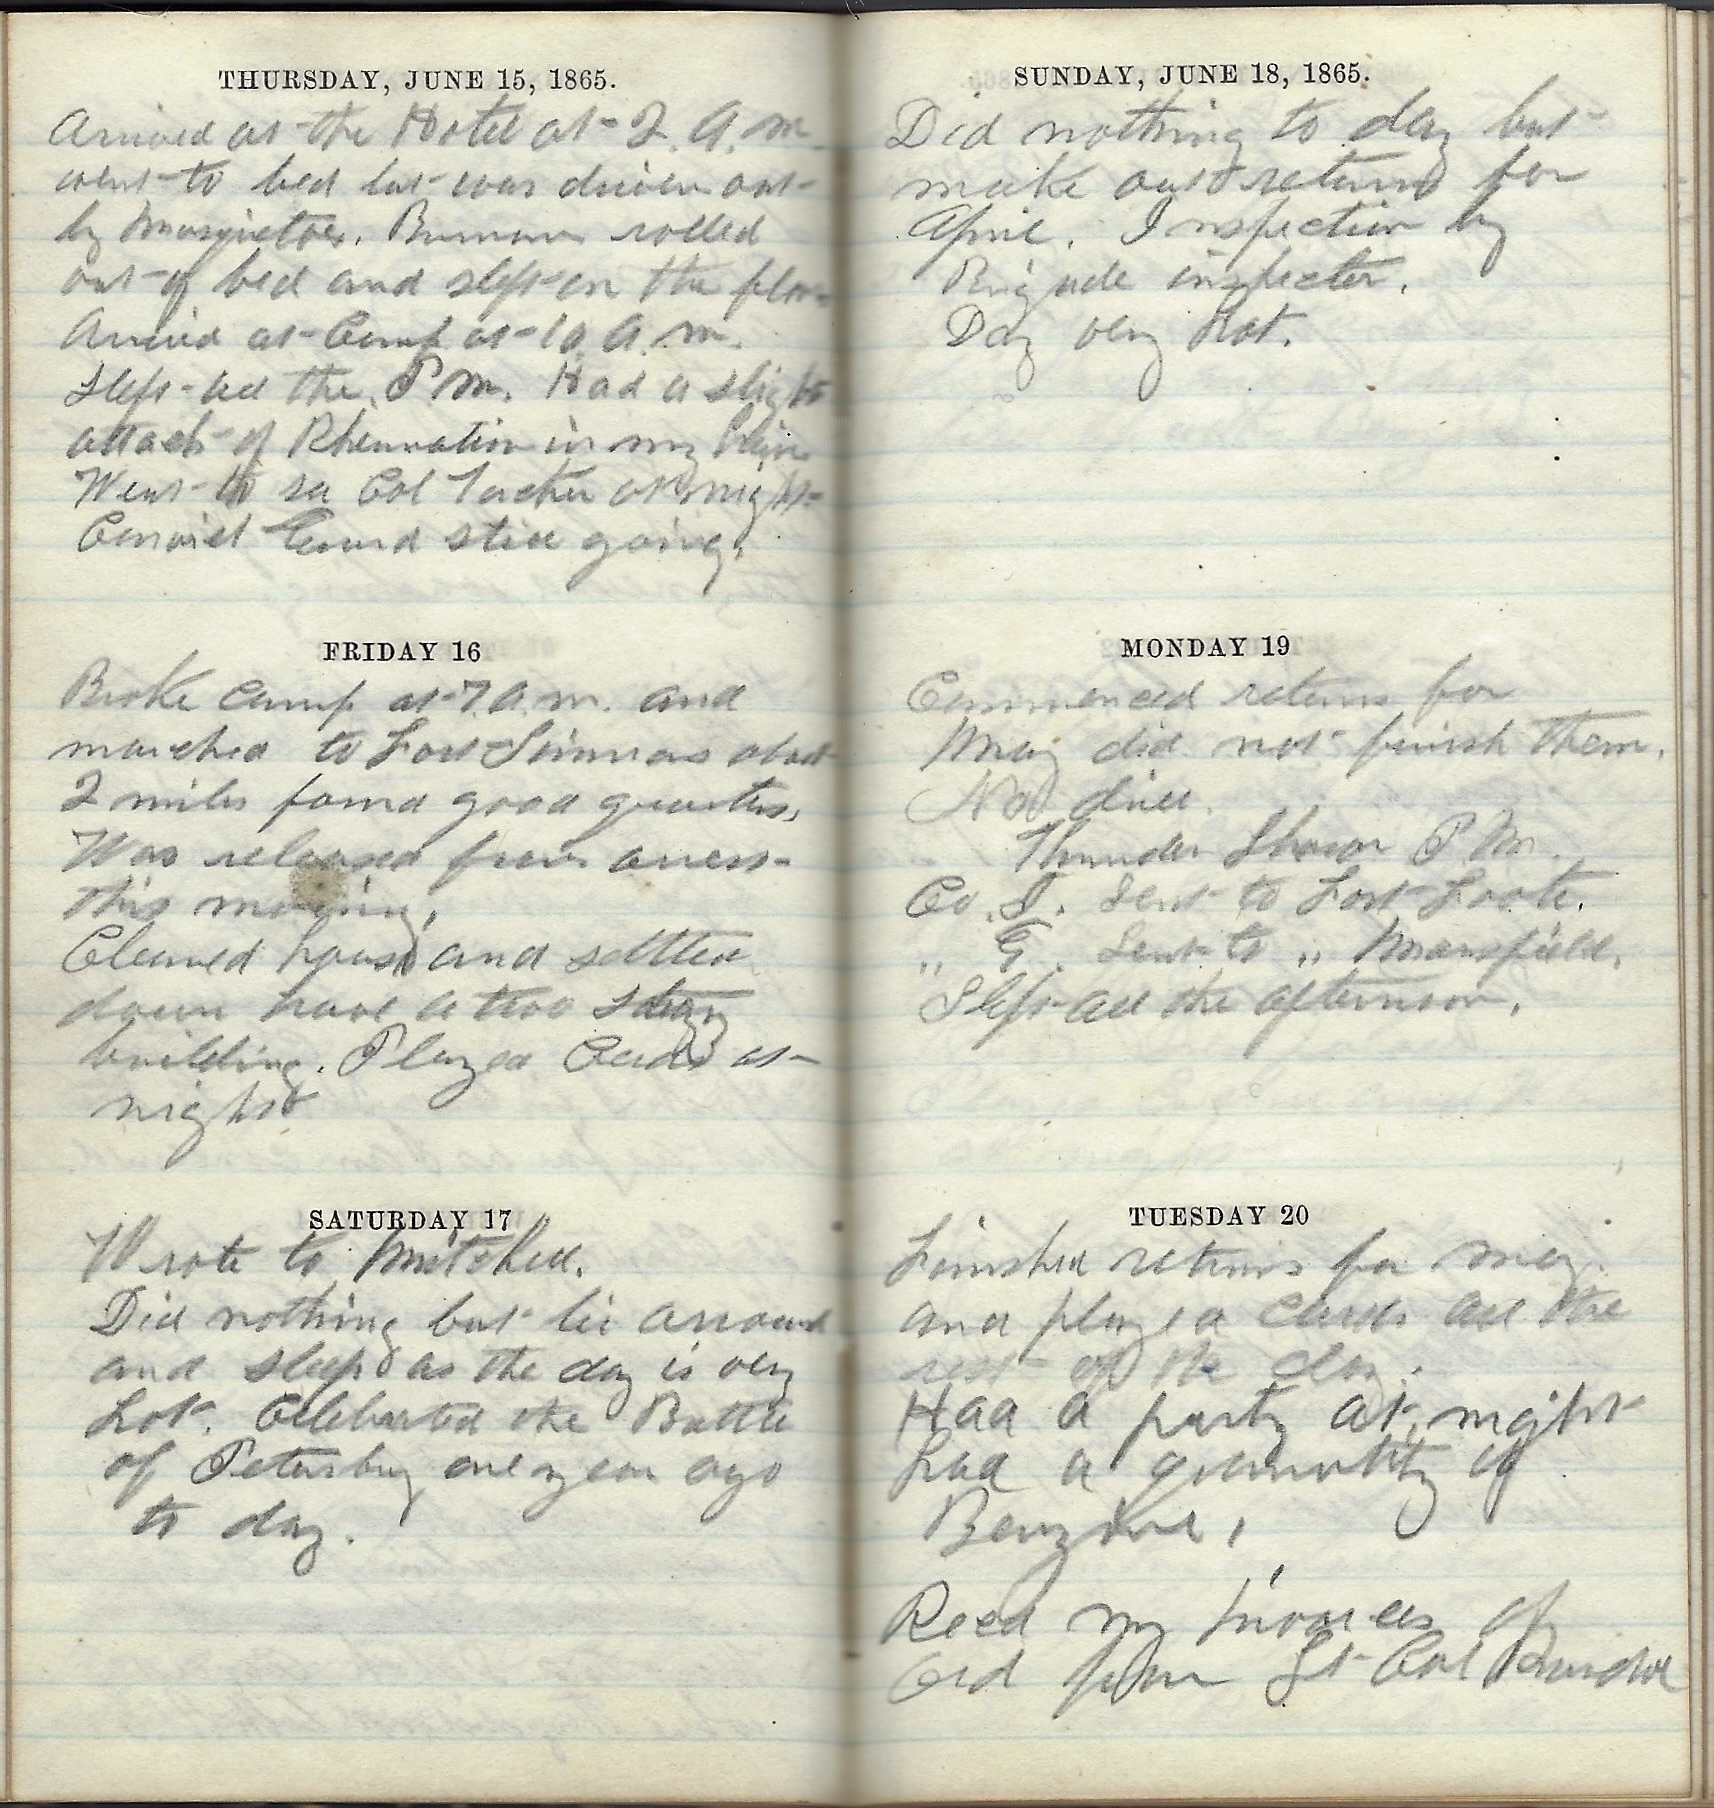 THURSDAY, JUNE 15, 1865.
Arrived at the Hotel at 2. A. m
went to bed but was driven out
by Musquetoes. rolled
out of bed and slept on the floor
Arrived at Camp at 10. A. m.
Slept all the P m. Had a slight
attack of Rheumatism in my
Went to see Col Tucker at night
Guard still going.
FRIDAY 16
Broke Camp at 7 A. m. and
marched to Fort about
2 miles found good quarters.
Was released from arrest
this morning.
Cleaned house and settled
down have a two story
building. Played Cards at
night
SATURDAY 17
Wrote to Mitchell.
Did nothing but lie arround
and sleep as the day is very
hot. Celebrated the Battle
of Petersburg one year ago
to day.
SUNDAY, JUNE 18, 1865.
Did nothing to day but
make out returns for
April. Inspection by
Brigade inspector.
Day very hot.
MONDAY 19
Commenced returns for
May did not finish them.
No drill.
Thunder Shower P M.
Co. I. Sent to Fort Foote.
" G. Sent to " Mansfield.
Slept all the afternoon.
TUESDAY 20
Finished returns for May.
and played cards all the
rest of the day.
Had a party at night
had a quantity of

Recd my invoices of
Ord from Lt Col